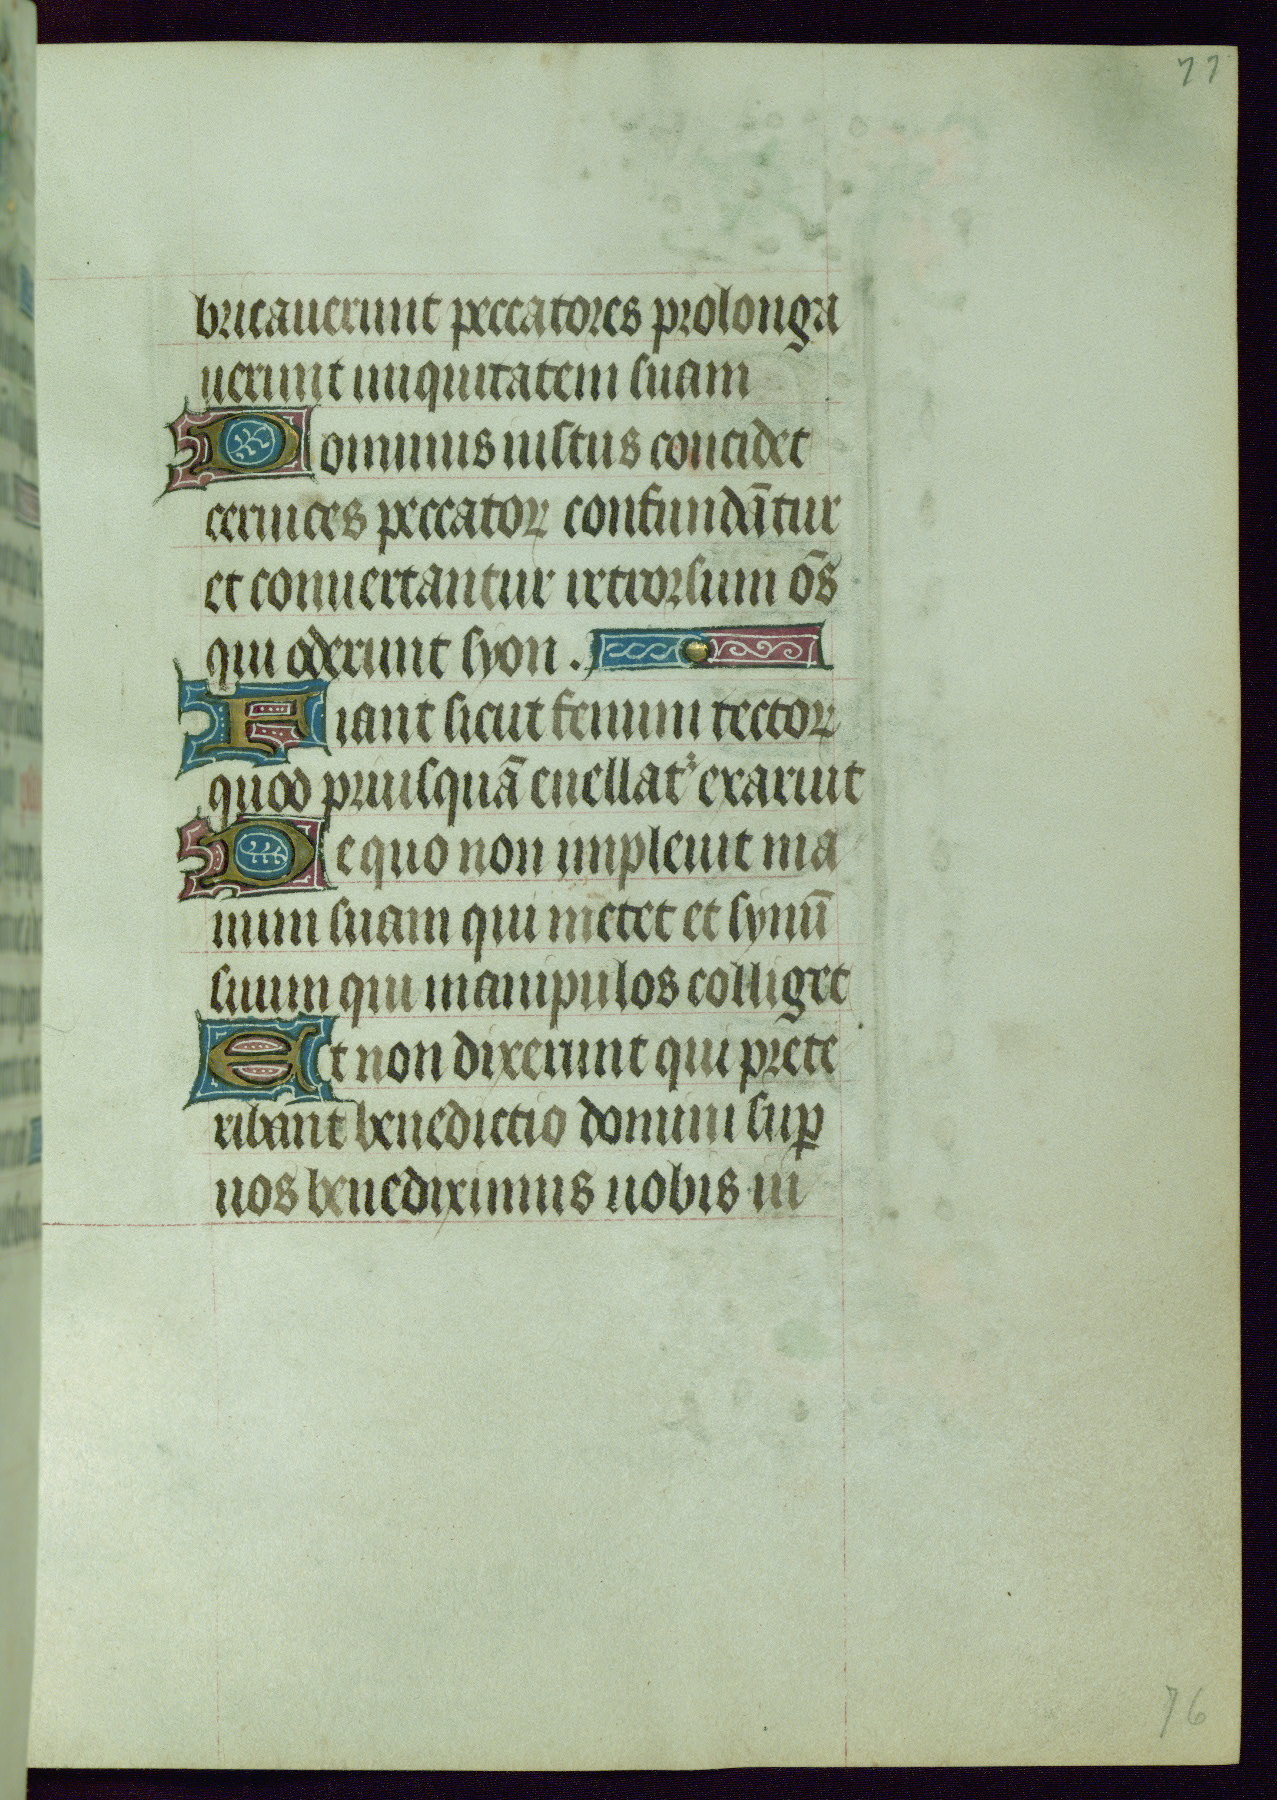 77
bricauerunt peccatores prolonga
uerunt iniquitatem suam
Dominus iustus concidet
ceruices peccatoꝝ confundātur
et conuertantur retrorsum oēs
qui oderunt syon .
Fiant sicut fenum tectoꝝ
quod priusquā euellat᷑ exaruit
De quo non impleuit ma
num suam qui metet et synū
suum qui manipulos colliget
Et non dixerunt qui prete
ribant benedictio domini suꝑ
uos benediximus uobis in
76